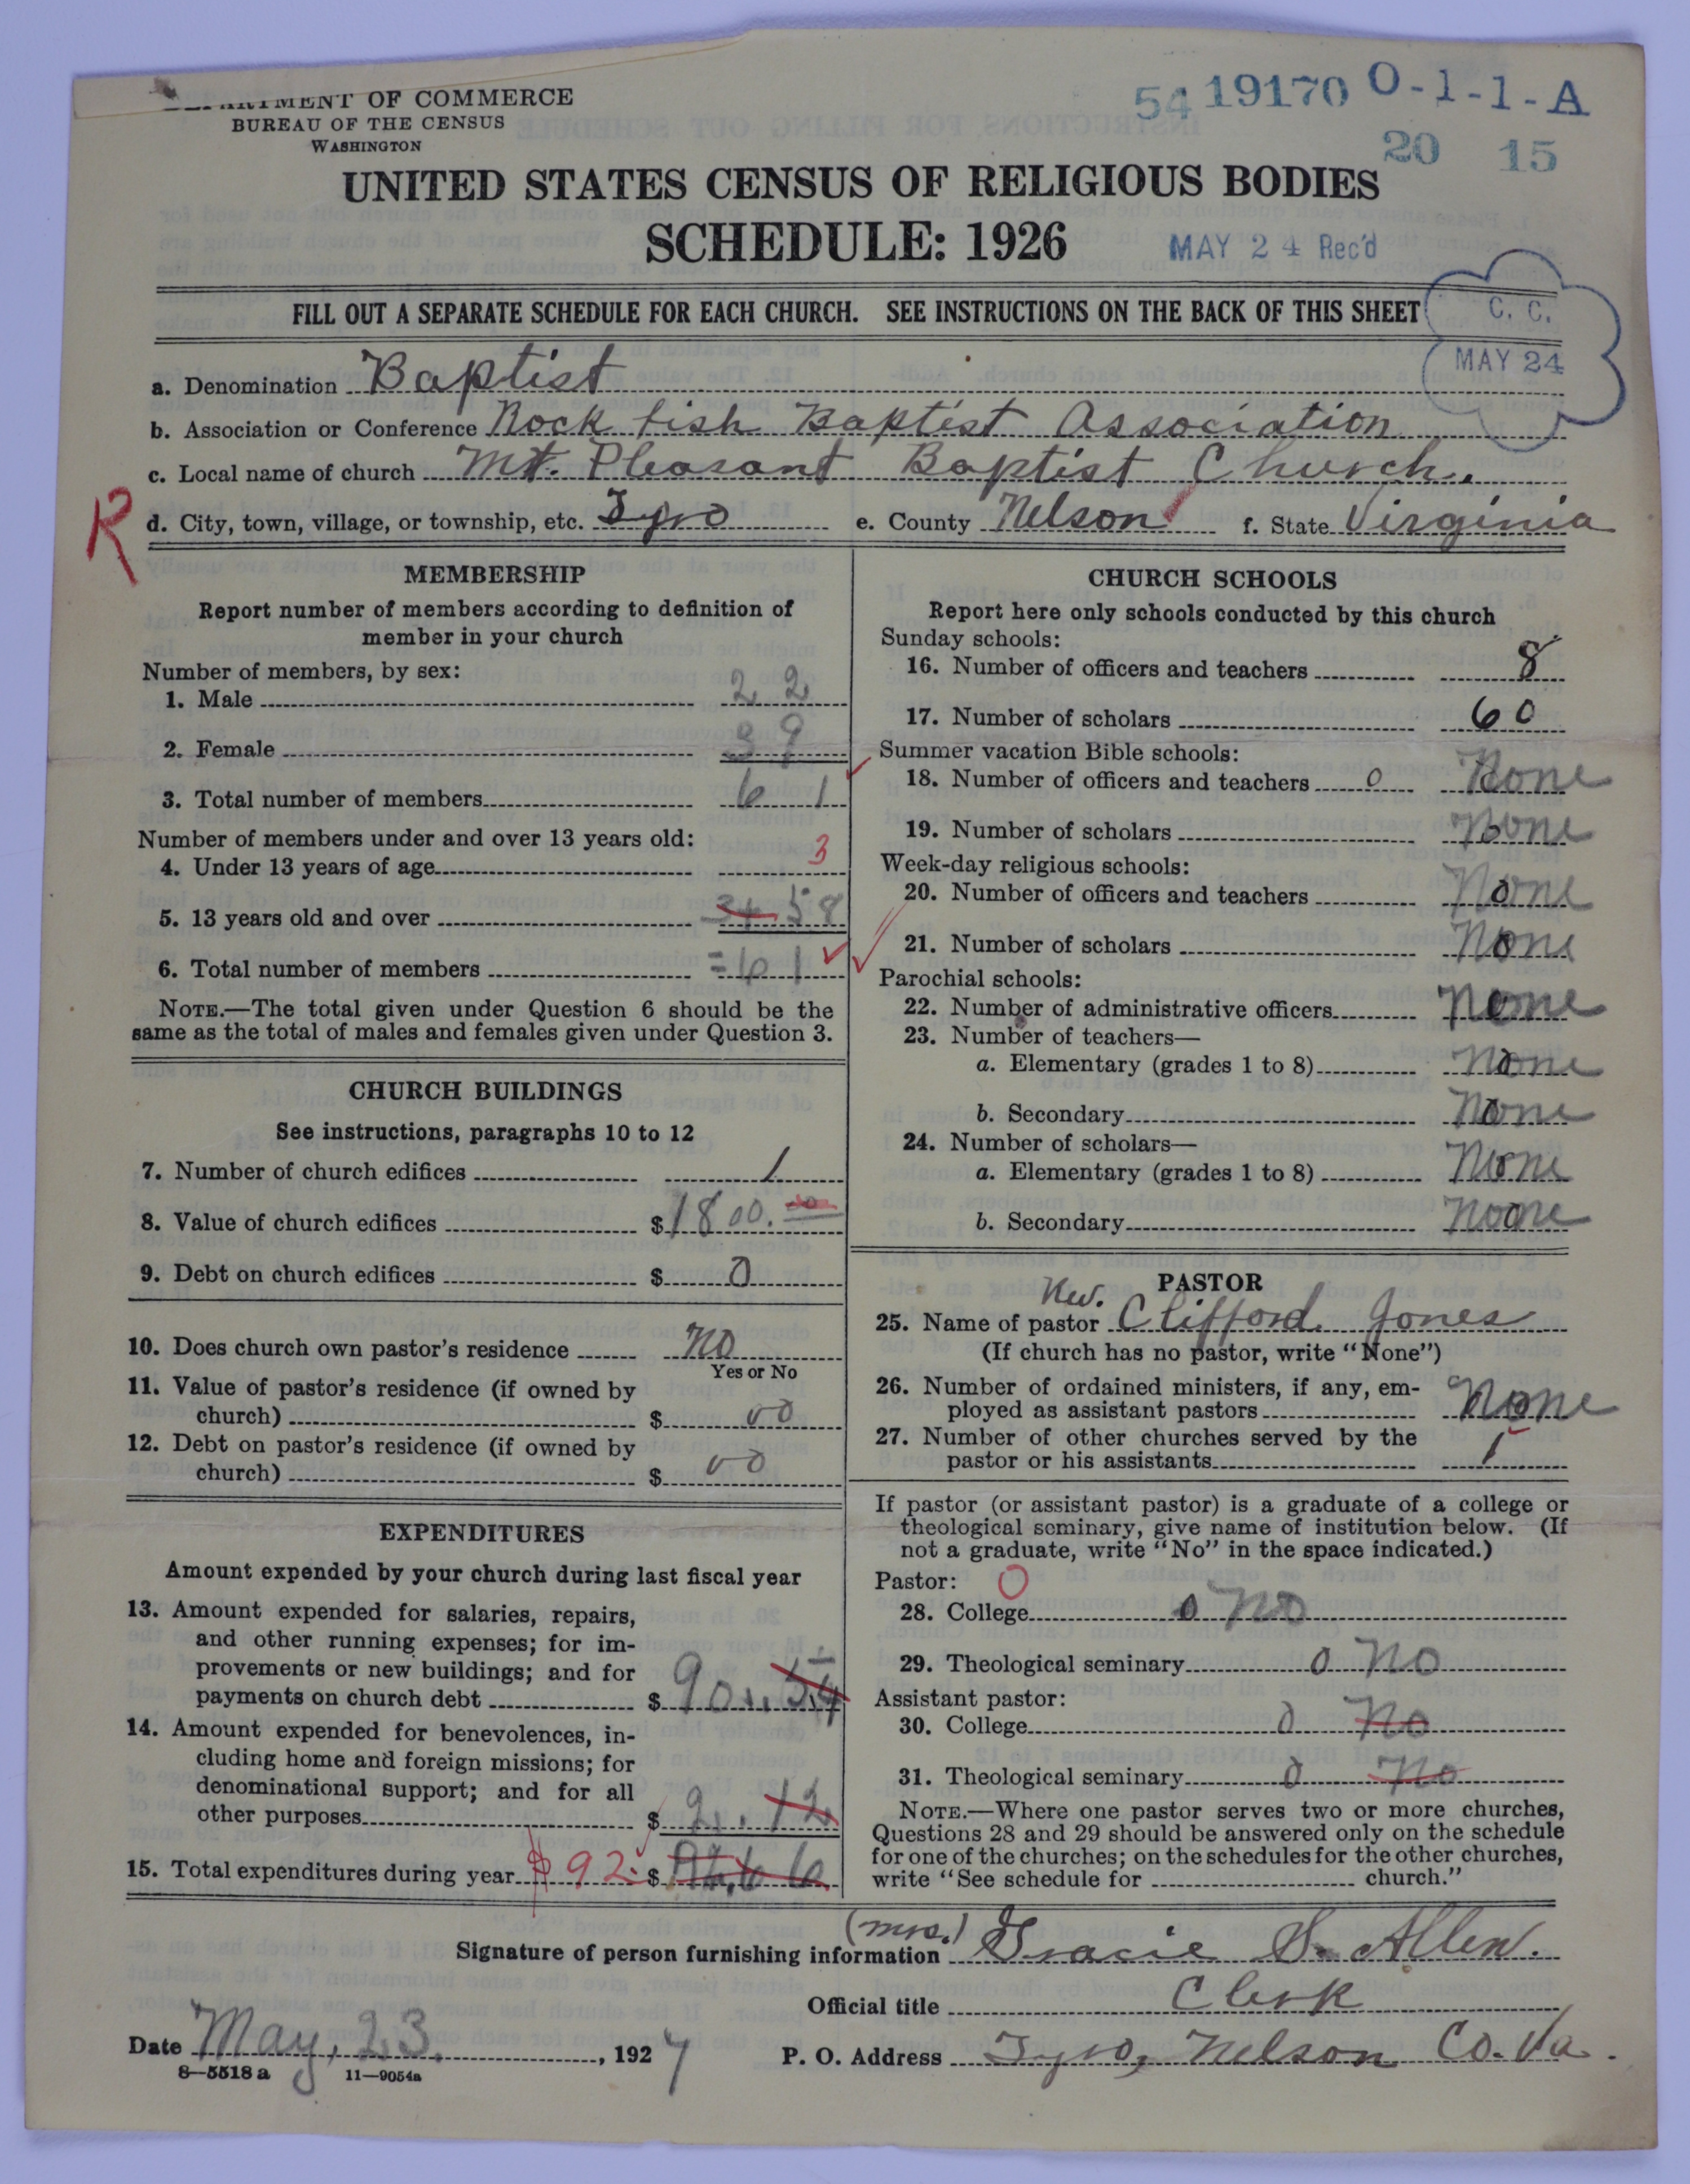 DEPARTMENT OF COMMERCE
BUREAU OF THE CENSUS
WASHINGTON
54 19170 O-1-1-A
20 15
UNITED STATES CENSUS OF RELIGIOUS BODIES
SCHEDULE: 1926
MAY 24 Rec'd
FILL OUT A SEPARATE SCHEDULE FOR EACH CHURCH. SEE INSTRUCTIONS ON THE BACK OF THIS SHEET
C. C.
MAY 24
a. Denomination Baptist
b. Association or Conference Rock fish Baptist Association
c. Local name of church Mt. Pleasant Baptist Church.
R
d. City, town, village, or township, etc. Tyro e. County Nelson f. State Virginia
MEMBERSHIP
Report number of members according to definition of
member in your church
Number of members, by sex:
1. Male 22
2. Female 39
3. Total number of members 61
Number of members under and over 13 years old:
4. Under 13 years of age 3
5. 13 years old and over 34 58
6. Total number of members =61
NOTE.—The total given under Question 6 should be the
same as the total of males and females given under Question 3.
CHURCH BUILDINGS
See instructions, paragraphs 10 to 12
7. Number of church edifices 1
8. Value of church edifices $1800.00
9. Debt on church edifices $ 0
10. Does church own pastor's residence no
Yes or No
11. Value of pastor's residence (if owned by
church) $ 00
12. Debt on pastor's residence (if owned by
church) $ 00
EXPENDITURES
Amount expended by your church during last fiscal year
13. Amount expended for salaries, repairs,
and other running expenses; for im-
provements or new buildings; and for
payments on church debt $ 90.54
14. Amount expended for benevolences, in-
cluding home and foreign missions; for
denominational support; and for all
other purposes $ 2.12
15. Total expenditures during year $92. $ 92.66
CHURCH SCHOOLS
Report here only schools conducted by this church
Sunday schools:
16. Number of officers and teachers 8
17. Number of scholars 60
Summer vacation Bible schools:
18. Number of officers and teachers 0 None
19. Number of scholars None
Week-day religious schools:
20. Number of officers and teachers None
21. Number of scholars None
Parochial schools:
22. Number of administrative officers None
23. Number of teachers—
a. Elementary (grades 1 to 8) None
b. Secondary None
24. Number of scholars—
a. Elementary (grades 1 to 8) None
b. Secondary None
PASTOR
Rev.
25. Name of pastor Clifford Jones
(If church has no pastor, write "None")
26. Number of ordained ministers, if any, em-
ployed as assistant pastors None
27. Number of other churches served by the
pastor or his assistants 1
If pastor (or assistant pastor) is a graduate of a college or
theological seminary, give name of institution below. (If
not a graduate, write "No" in the space indicated.)
Pastor: O
28. College 0 No
29. Theological seminary 0 No
Assistant pastor:
30. College 0 No
31. Theological seminary 0 No
NOTE.—Where one pastor serves two or more churches,
Questions 28 and 29 should be answered only on the schedule
for one of the churches; on the schedules for the other churches,
write "See schedule for church."
(Mrs.)
Signature of person furnishing information Gracie S. Allen.
Official title Clerk
Date May, 23. , 1927
P. O. Address Tyro, Nelson Co. Va.
8—5518 a 11—9054a